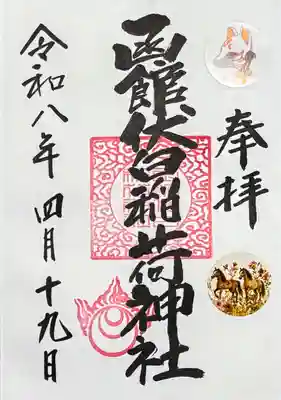 奉拝
函館伏白稲荷神社
令和八年四月十九日